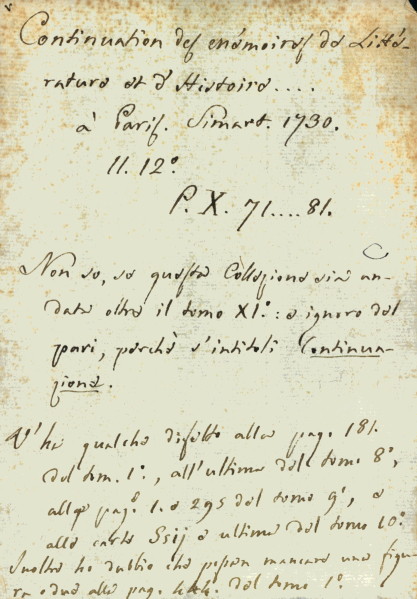 Continuation des mémoires de Litté-
rature et d'Histoire....
à Paris. Simart. 1730.
11. 12º.
P. X. 71....81.
Non so, se questa Collezione sia an-
data oltre il tomo XIº: e ignoro del
pari, perchè s'intitoli Continua-
zione.
V'ha qualche difetto alla pag. 181.
del tom. 1º., all'ultima del tomo 8º,
alle pagº 1. e 295 del tomo 9º, e
alla carta Ssij e ultima del tomo 10º.
Inoltre ho dubbio che possan mancare una figu-
ra o due alla pag. 444. del tomo 1º.